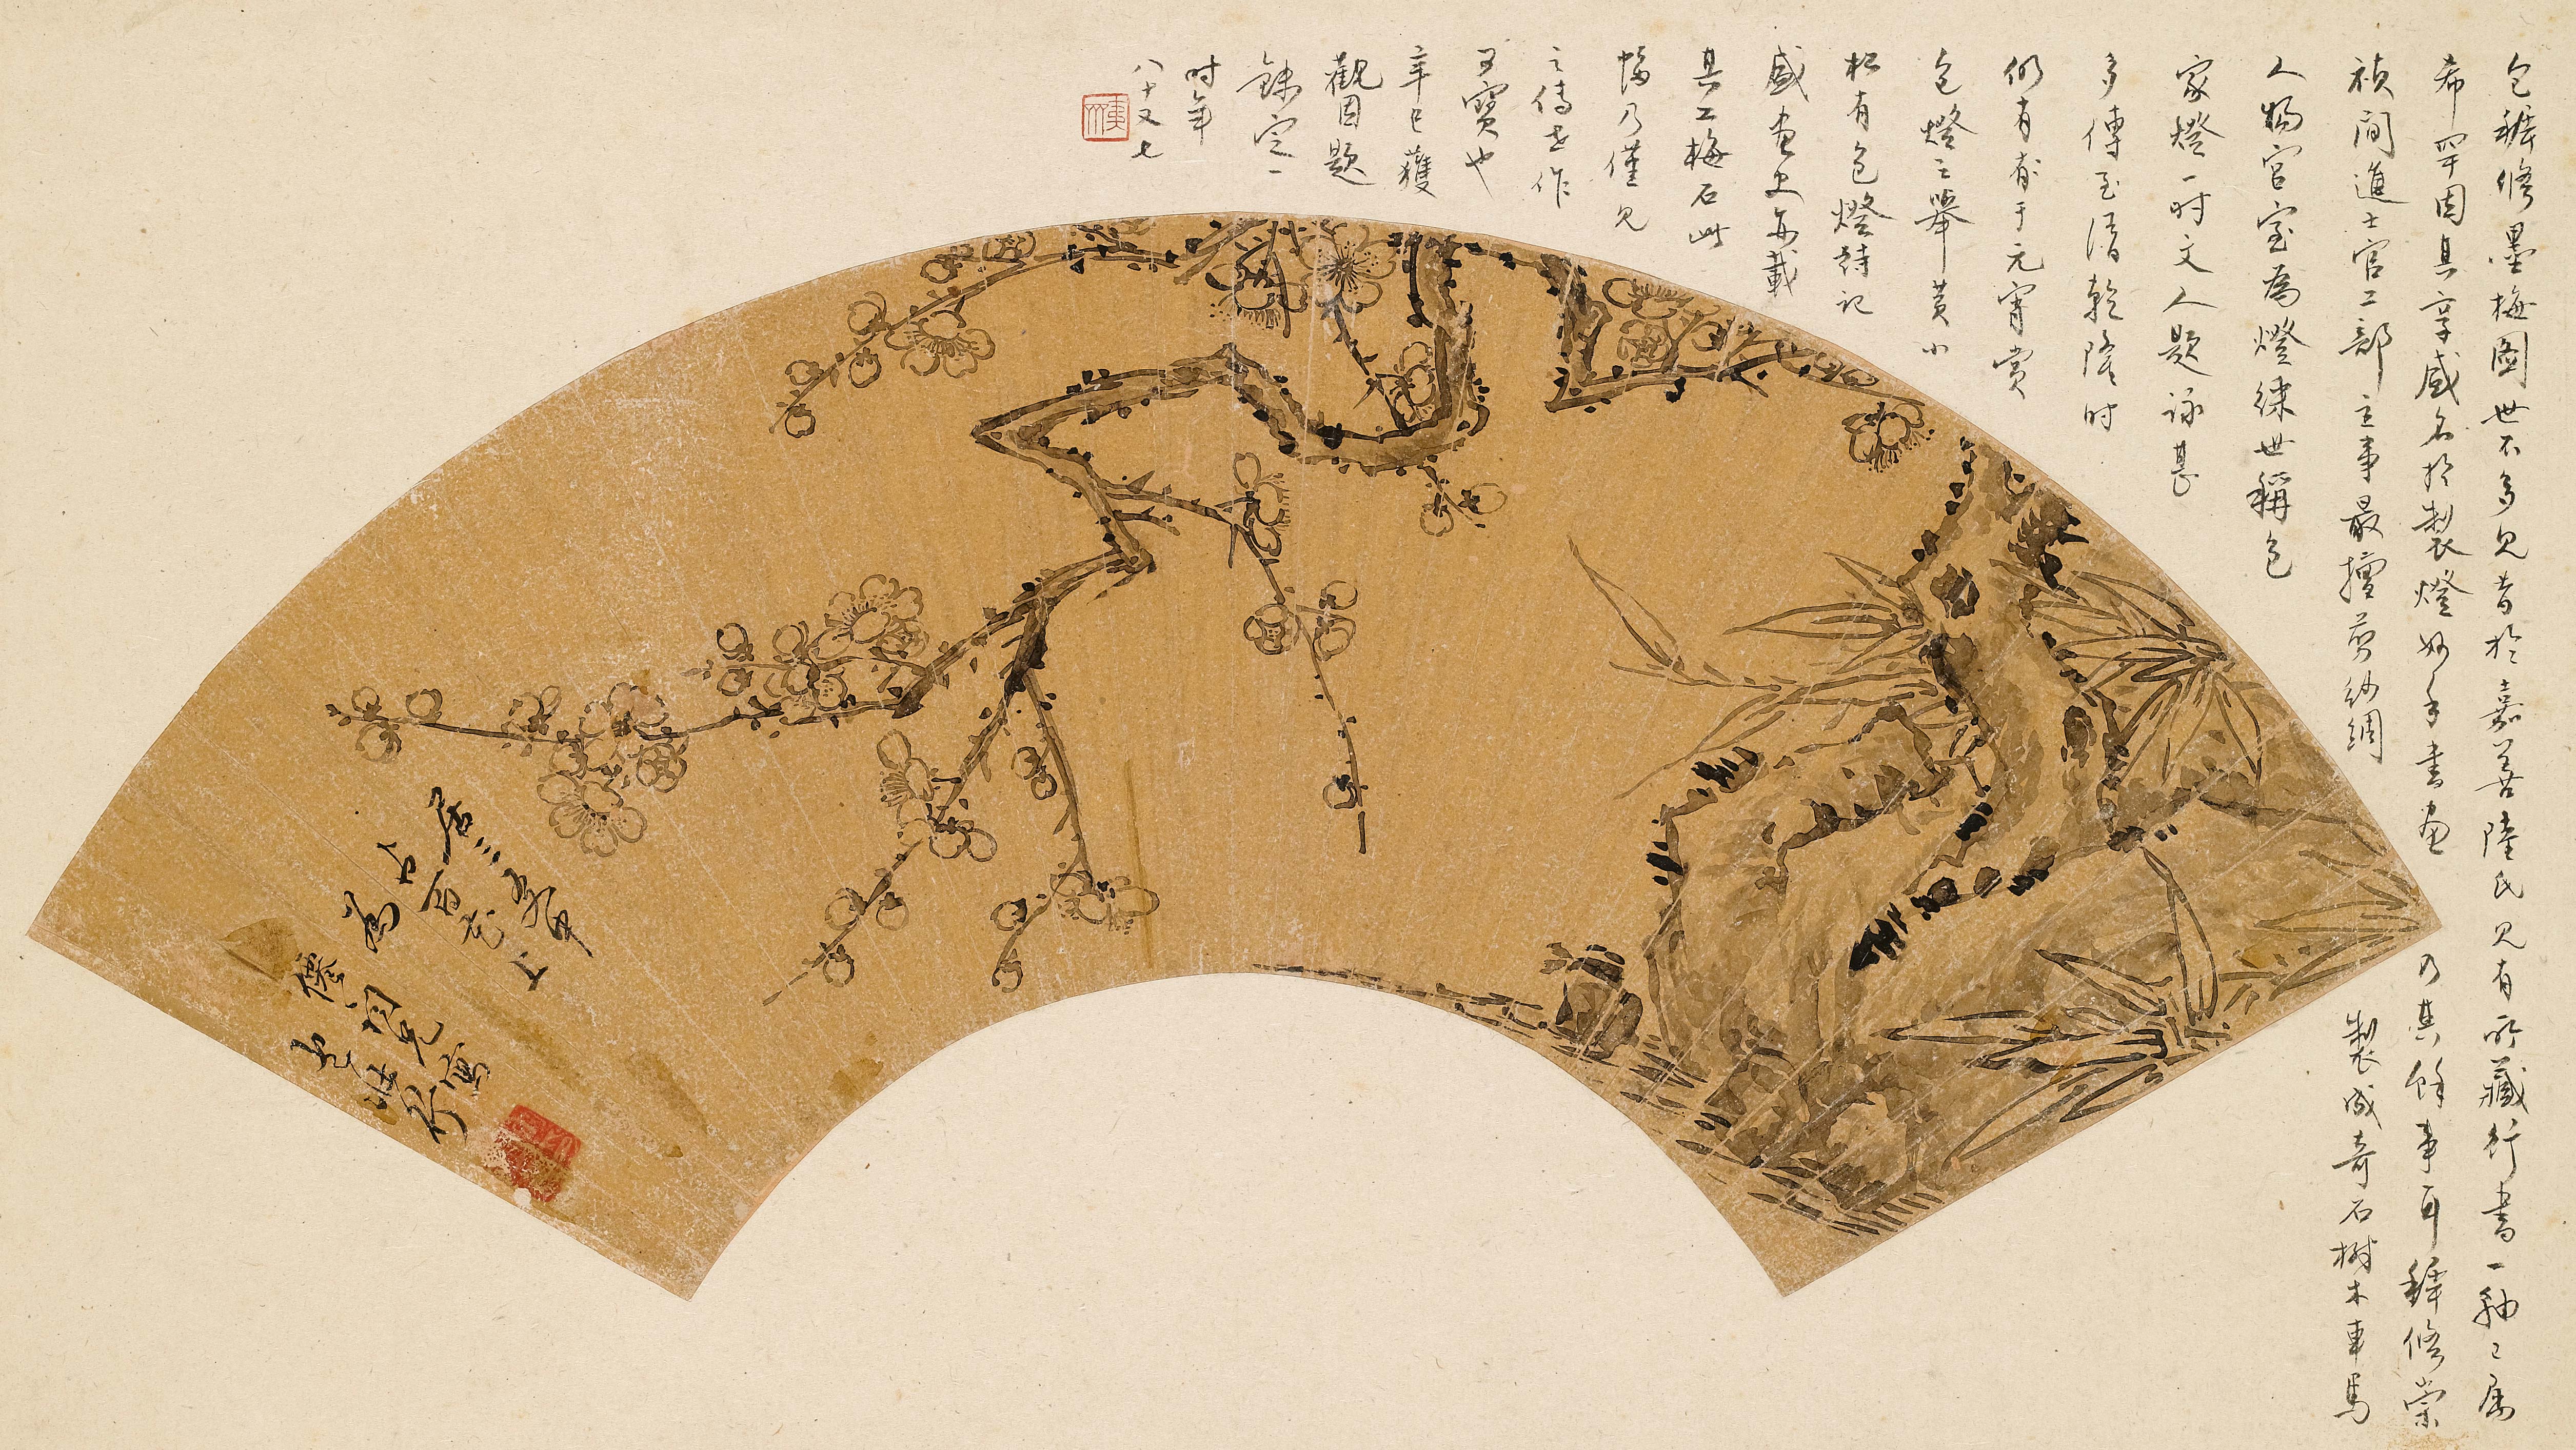 包穉修墨梅圖世不多見昔於嘉善陸氏見有所藏行書一軸已屬
希罕因其享盛名於製燈妙手書畫乃其餘事耳穉修崇
禎間進士官工部主事最擅剪紗綢製成奇石樹木車馬
人物宫室為燈綵世稱包
家燈一時文人題詠甚
多傳至清乾隆時
仍有於元宵賞
包燈之舉黄小
松有包燈詩記
盛畫史亦載
其工梅石此
幅乃僅見
之傳世作
可寶也
辛巳獲
觀因題
銖定一
時年
八十又七
居三春
上百花
占
為
德潤兄寫
包壯行